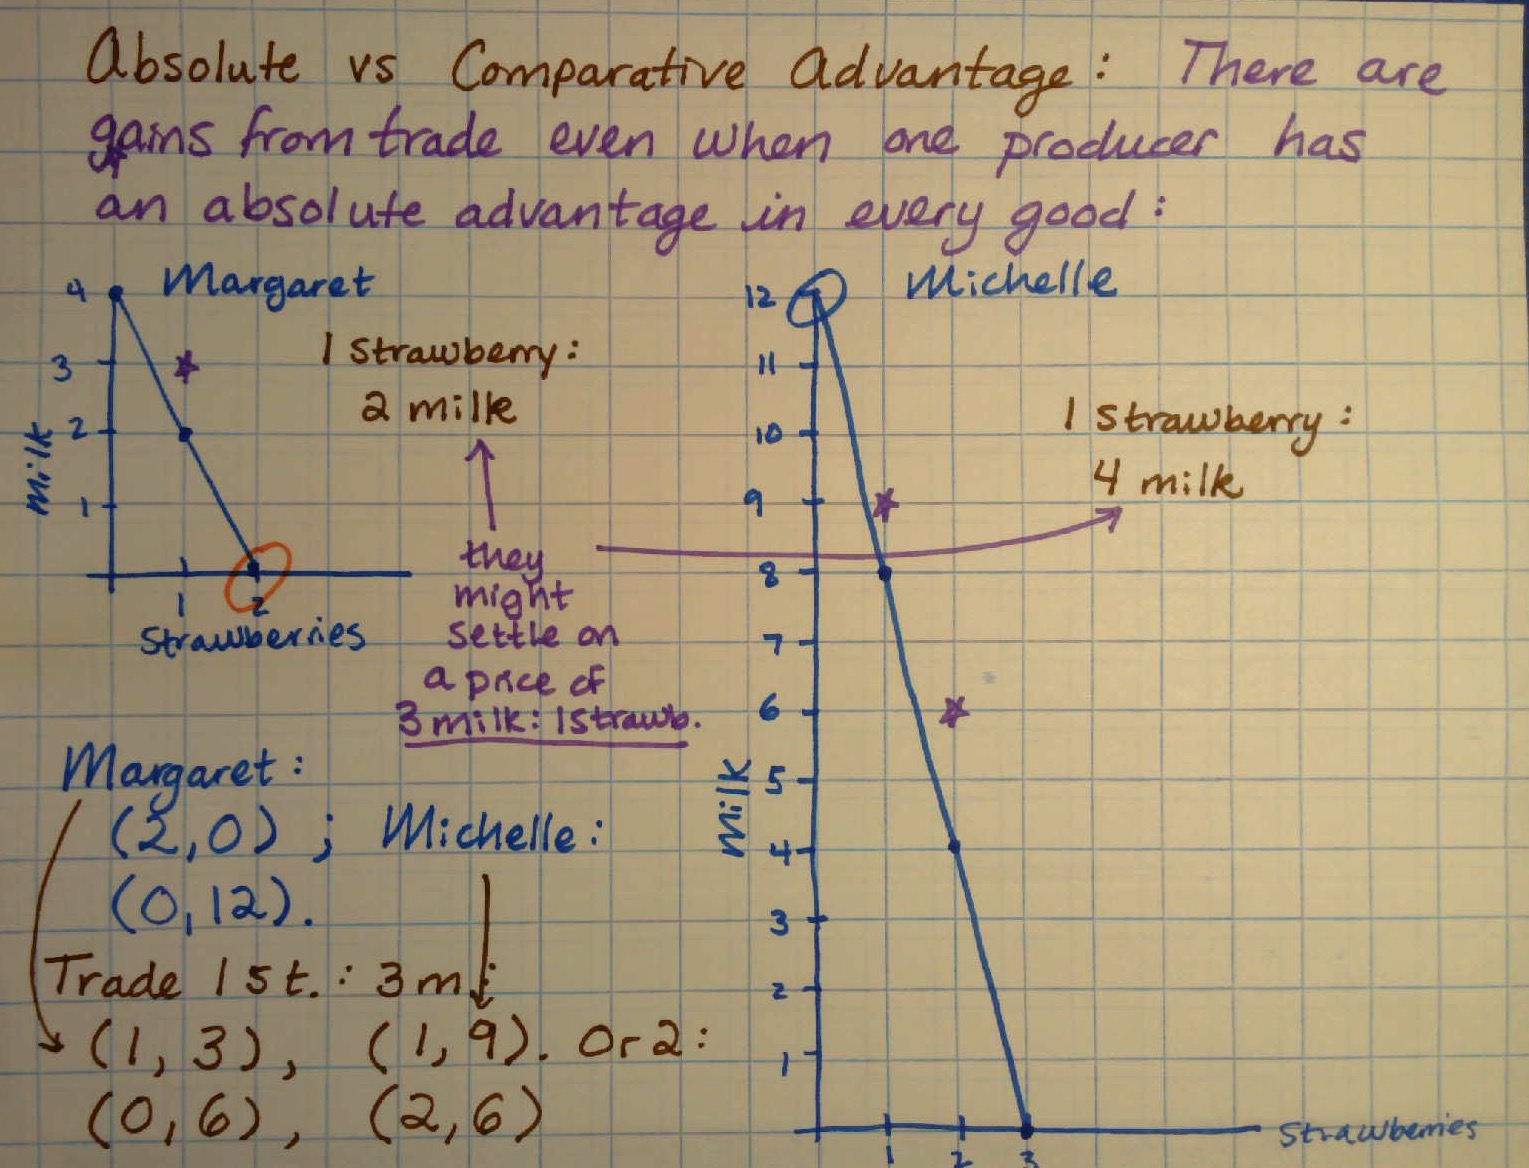 Absolute vs Comparative Advantage: There are
gains from trade even when one producer has
an absolute advantage in every good:
Margaret
4
3
2
1
Milk
1 2
Strawberries
1 Strawberry:
2 milk
they
might
settle on
a price of
3 milk: 1 strawb.
Michelle
12
11
10
9
8
7
6
5
4
3
2
1
Milk
1 2 3
Strawberries
1 Strawberry:
4 milk
Margaret:
(2,0) ; Michelle:
(0,12).
Trade 1 st.: 3 m:
(1, 3), (1, 9). Or 2:
(0,6), (2,6)